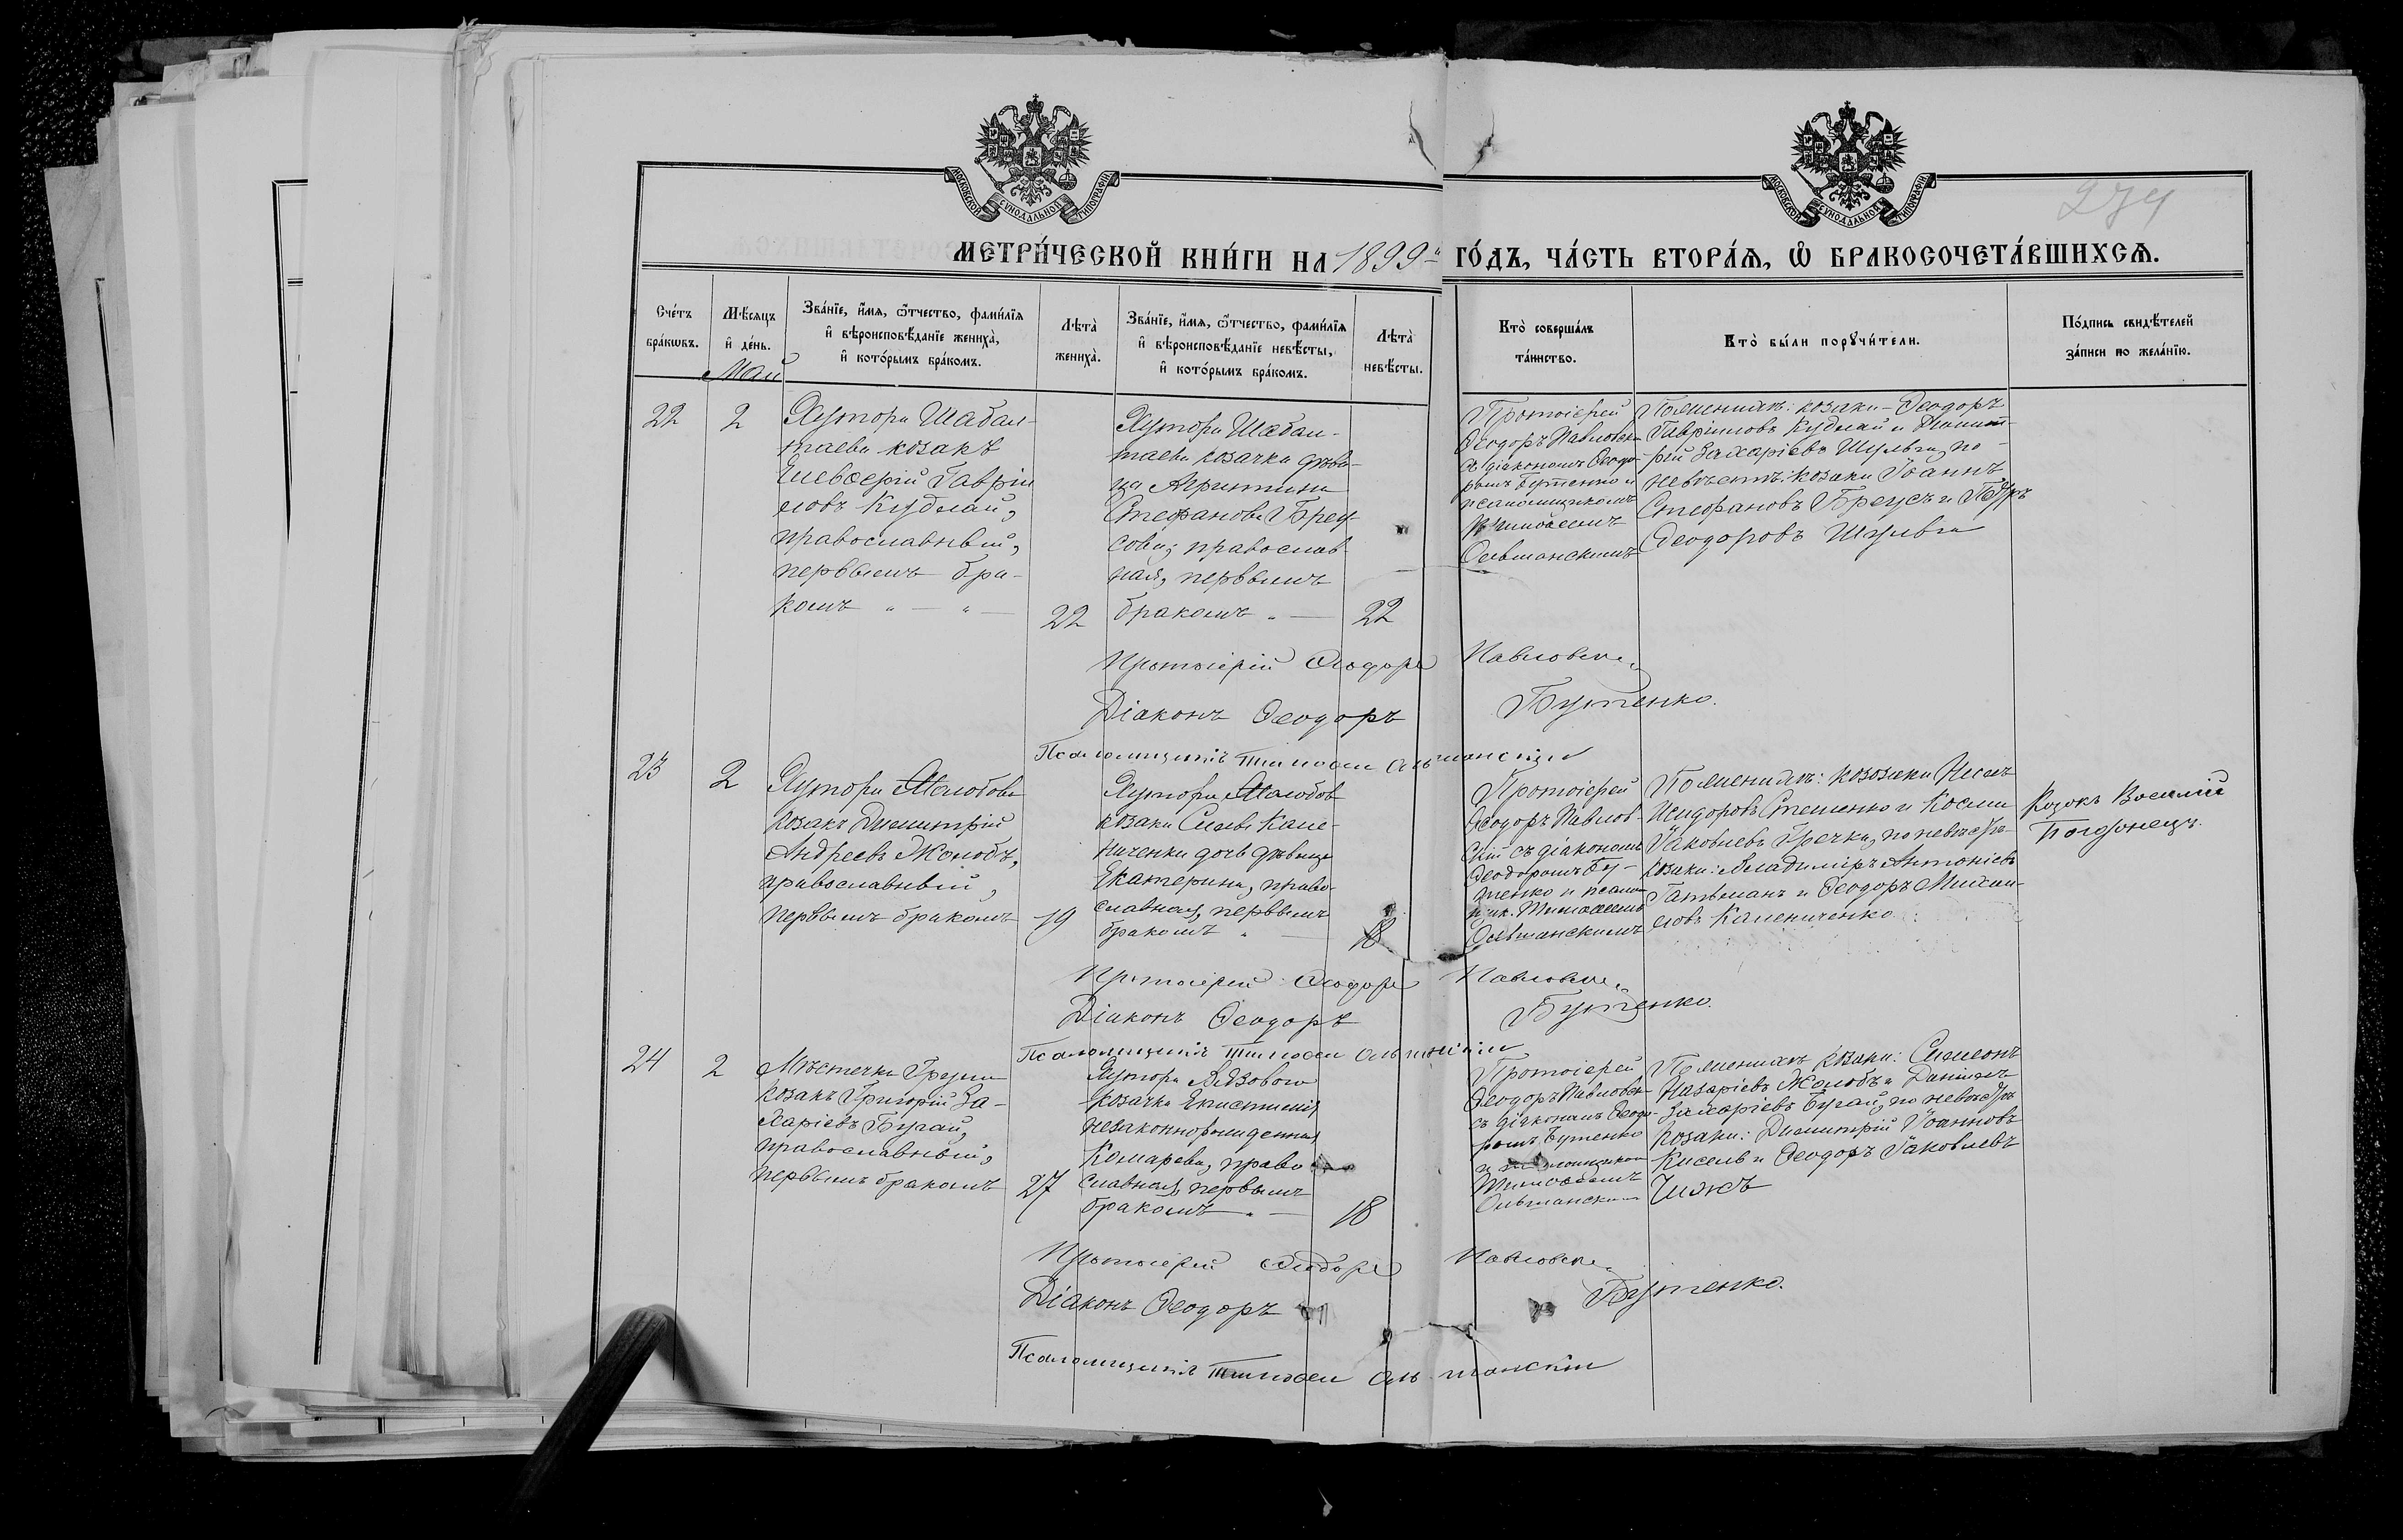 МОСКОВСКОЙ СУНОДАЛЬНОЙ ТИПОГРАФІИ
МОСКОВСКОЙ СУНОДАЛЬНОЙ ТИПОГРАФІИ
274
МЕТРИ́ЧЕСКОЙ КНИ́ГИ НА 1899 ГО́ДЪ, ЧА́СТЬ ВТОРА́Ѧ, Ѡ҆ БРАКОСОЧЕТА́ВШИХСѦ.
Сче́тъ
бра́кѡвъ.
Мѣ́сѧцъ
и҆ де́нь.
Май
Зва́нїе, и҆́мѧ, ѻ҆́тчество, фами́лїѧ
и҆ вѣроисповѣ́данїе жениха̀,
и҆ кото́рымъ бра́комъ.
Лѣта̀
жениха̀.
Зва́нїе, и҆́мѧ, ѻ҆́тчество, фами́лїѧ
и҆ вѣроисповѣ́данїе невѣ́сты,
и҆ кото́рымъ бра́комъ.
Лѣта̀
невѣ́сты.
Кто̀ соверша́лъ
та́инство.
Кто̀ бы́ли порꙋчи́тели.
По́дпись свидѣ́телей
за́писи по жела́нїю.
22
2
Хутора Шабал-
таева козакъ
Елевѳерій Гаврiи
ловъ Кудлай,
православный,
первымъ бра-
комъ
22
Хутора Шабал-
таева козачка дѣви-
ца Агрипина
Стефанова Бреу-
сова, православ
ная, первымъ
бракомъ
22
Протоіерей
Ѳеодоръ Павловскій
съ діакономъ Ѳеодо-
ромъ Бутенко и
псаломщикомъ
Тимоѳеемъ
Ольшанскимъ
По женихѣ: козаки - Ѳеодоръ
Гавріиловъ Кудлай и
Захаріевъ Шульга, по
невѣстѣ: козаки Іоаннъ
Стефановъ Бреусъ и Петръ
Ѳеодоровъ Шульга
Протоіерей Ѳеодоръ Павловскій
Діаконъ Ѳеодоръ Бутенко.
Псаломщикъ Тимоѳей Ольшанскій
23
2
Хутора
козакъ Димитрій
Андреевъ Жолобъ,
православный,
первымъ бракомъ
19
Хутора
козака Саввы Каме-
ниченка дочь дѣвица
Екатерина, право-
славная, первымъ
бракомъ
18
Протоіерей
Ѳеодоръ Павлов-
скій съ діакономъ
Ѳеодоромъ Бу-
тенко и псалом-
щик. Тимоѳеемъ
Ольшанскимъ
По женихѣ: козаки
Исидоровъ Стеценко и Косма
Іаковлевъ Гречка, по невѣстѣ
козаки: Владиміръ Антоніевъ
Гатьманъ и Ѳеодоръ Михаи-
ловъ Камениченко
Козакъ Василій
Протоіерей Ѳеодоръ Павловскій
Діаконъ Ѳеодоръ Бутенко.
Псаломщикъ Тимоѳей Ольшанскій
24
2
Мѣстечка Груни
козакъ Григорій За-
харіевъ Бугай,
православный,
первымъ бракомъ
27
Хутора
козачка
незаконнорожденная
Комарева, право
славная, первымъ
бракомъ
18
Протоіерей
Ѳеодоръ Павловскій
съ діакономъ Ѳеодо-
ромъ Бутенко
и псаломщикомъ
Тимоѳеемъ
Ольшанскимъ
По женихѣ козаки: Симеонъ
Назаріевъ Жолобъ и Даніилъ
Захаріевъ Бугай, по невѣстѣ
козаки: Димитрій Іоанновъ
Кисель и Ѳеодоръ Іаковлевъ
Чижъ
Протоіерей Ѳеодоръ Павловскій
Діаконъ Ѳеодоръ Бутенко.
Псаломщикъ Тимоѳей Ольшанскій